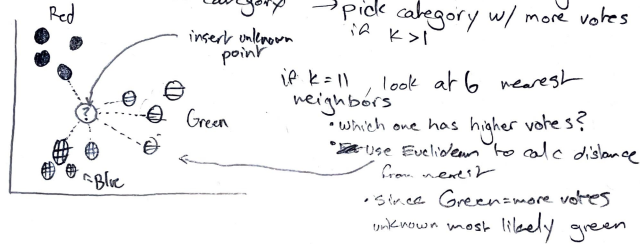 category → pick category w/ more votes
if K>1
Red
insert unknown
point
?
Green
Blue
if k=11, look at 6 nearest
neighbors
• which one has higher votes?
• Use Euclidean to calc distance
from nearest
• Since Green=more votes
unknown most likely green